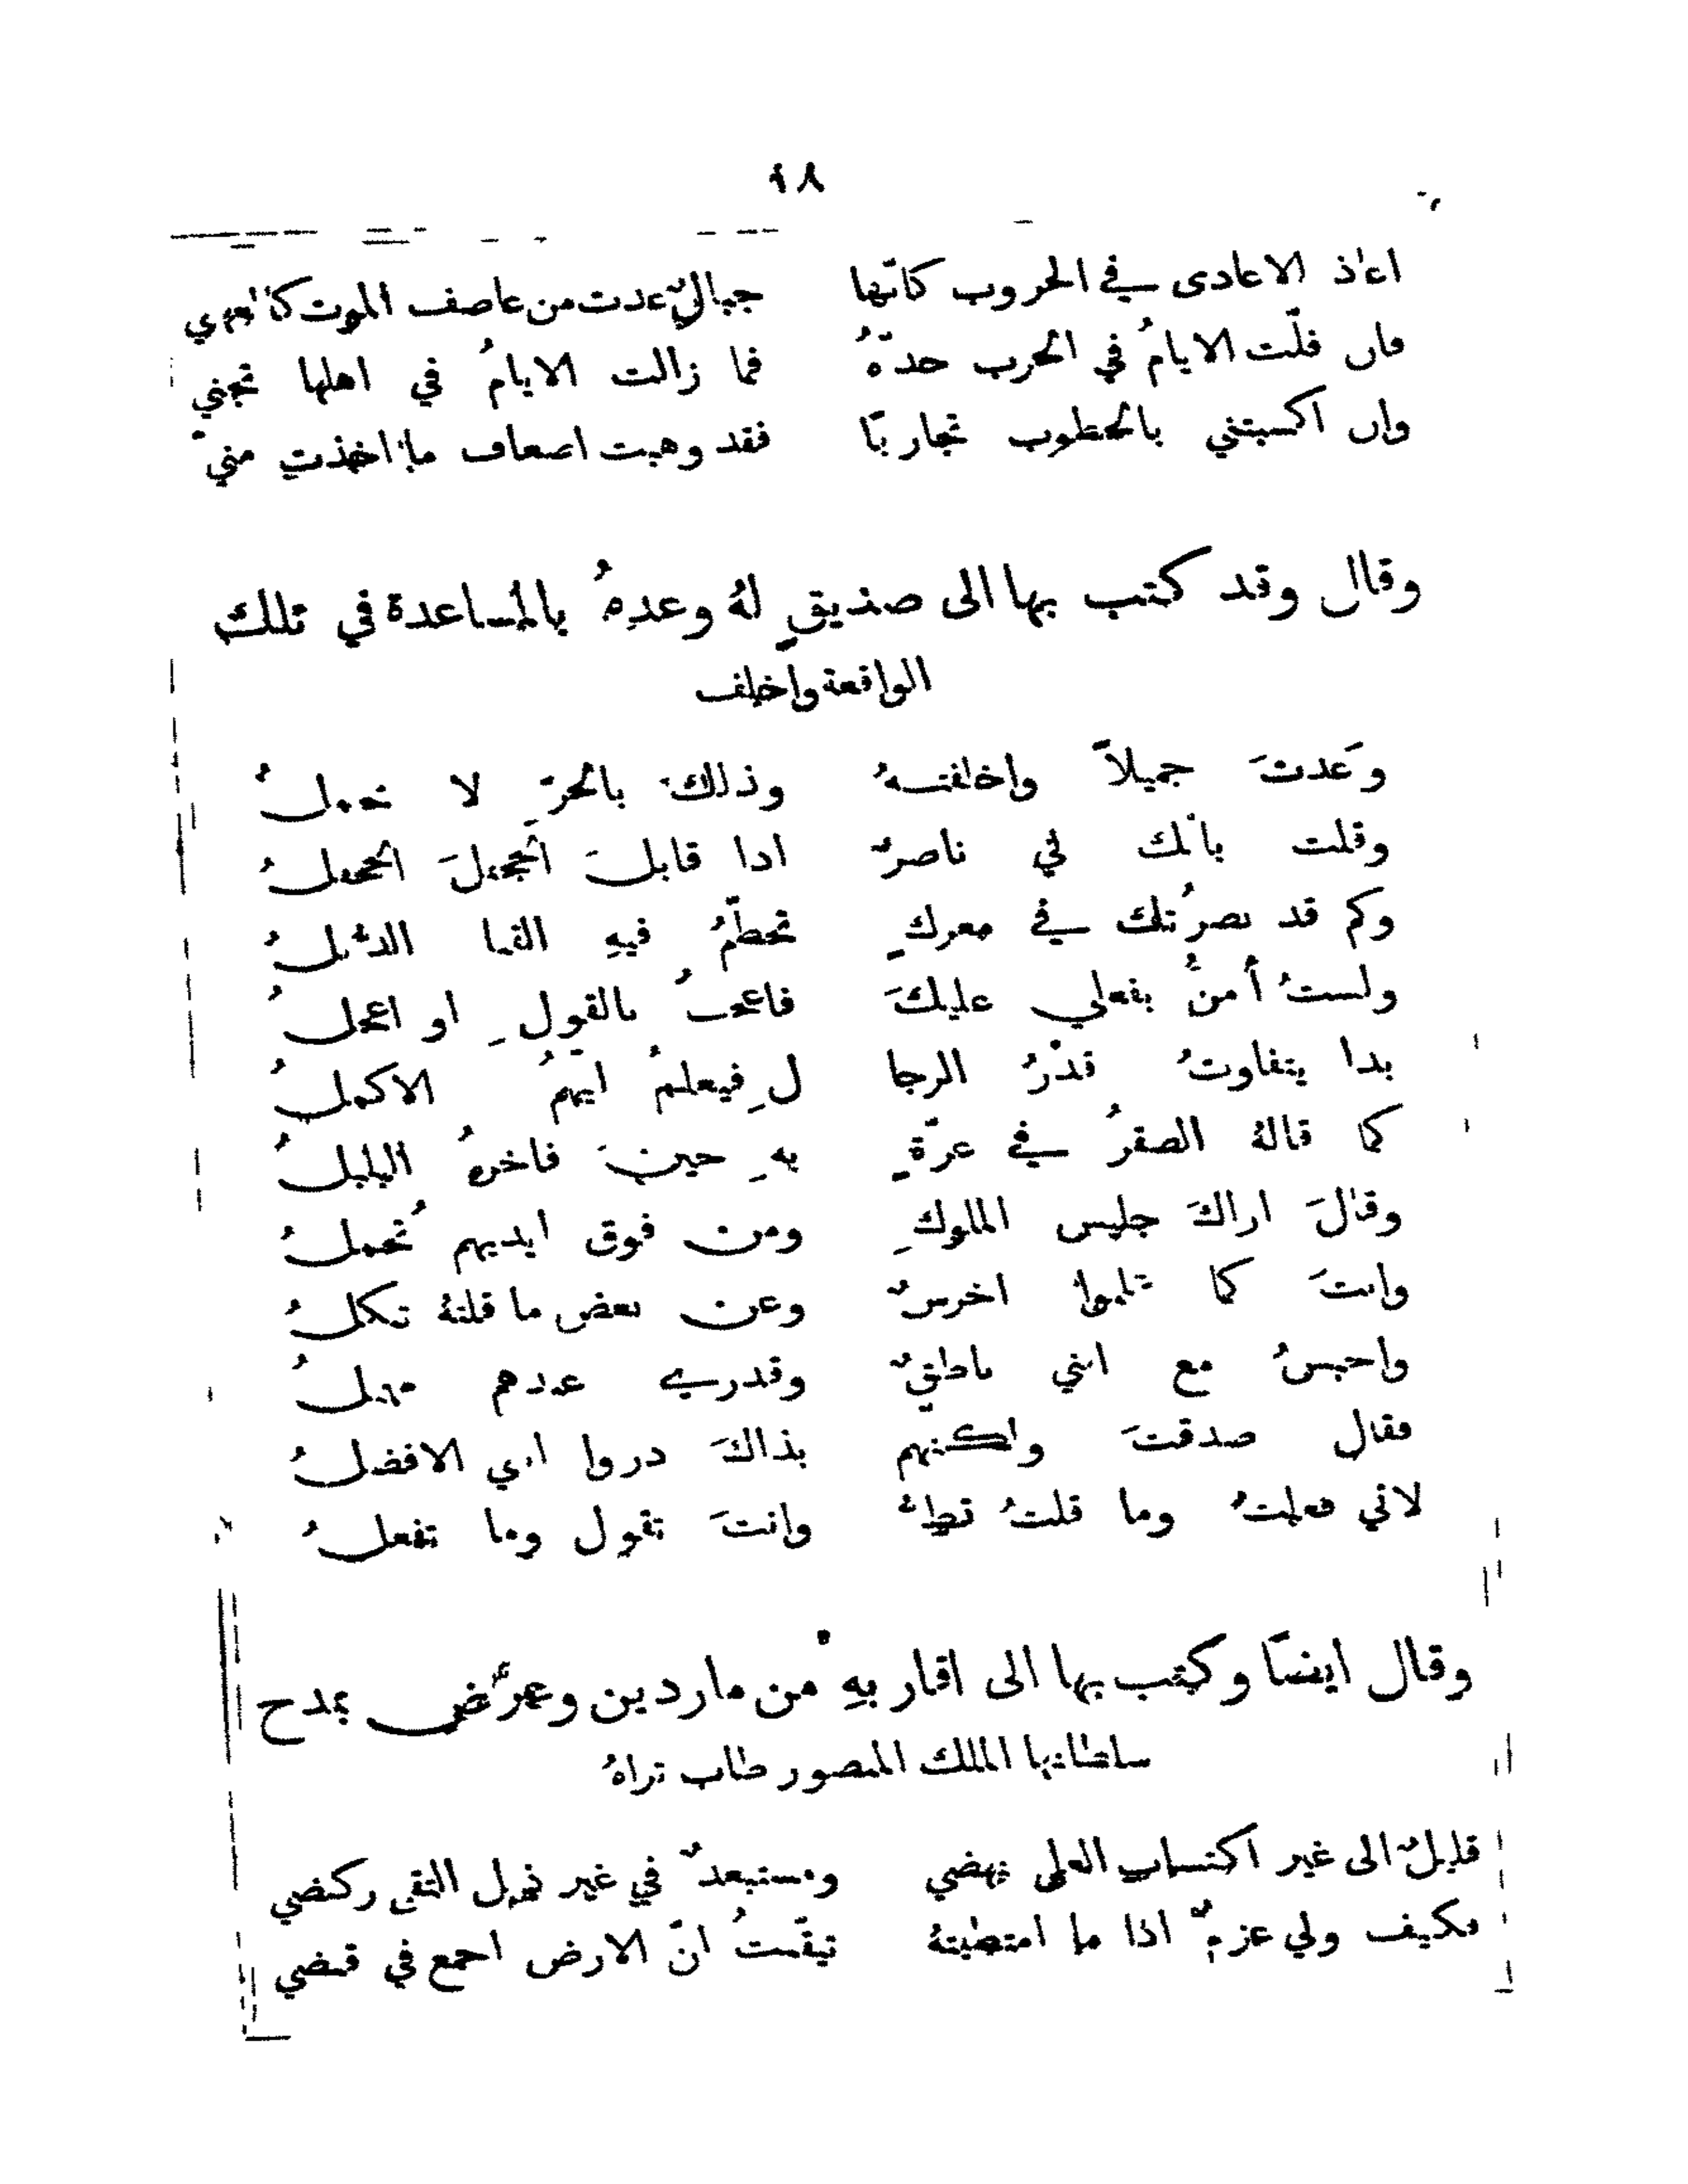 ١٨
اعاذ الاعادى في الحروب كانّها جبالٌ عدت من عاصف الموت كالعهن
فان فلّت الايامُ في الحرب حدّهُ فما زالت الايامُ في اهلها تجني
وان اكسبتني بالخطوب تجاربًا فقد وهبت اضعاف ما اخذت منيّ
وقال وقد كتب بها الى صديقٍ لهُ وعدهُ بالمساعدة في تلك
الواقعة واخلف
وَعدتَ جميلاً واخلفتهُ وذلك بالحرّ لا يجملُ
وقلت بانّك لي ناصرٌ اذا قابلَ الجحفلَ الجحفلُ
وكم قد نصرُتك في معركٍ تحطّمُ فيهِ القنا الذبّلُ
ولستُ أمنُّ بفعلي عليكَ فاعجبُ بالقولِ او اعجلُ
بدا يتفاوتُ قدْرُ الرجا لِ فيعلمُ ايّهمُ الاكملُ
كما قالهُ الصقرُ في عزّةٍ بهِ حينَ فاخرهُ البلبلُ
وقالَ اراكَ جليس الملوكِ ومن فوق ايديهم تُحملُ
وانتَ كما علموا اخرسٌ وعن بعض ما قلتهُ تنكلُ
واحبسُ مع انني ناطقٌ وقدري عندهم مهملُ
فقال صدقتَ ولكنهم بذاكَ دروا اني الافضلُ
لاني فعلتُ وما قلتُ قطّ وانتَ تقول وما تفعلُ
وقال ايضًا وكتب بها الى اقاربهِ من ماردين وعرَّض بمدح
سلطانها الملك المنصور طاب ثراهُ
قليلٌ الى غير اكتساب العلى نهضي ومستبعدٌ في غير نيل التقى ركضي
فكيف ولي عزمٌ اذا ما امتطيتهُ تيقّنتُ انّ الارض اجمع في قبضي